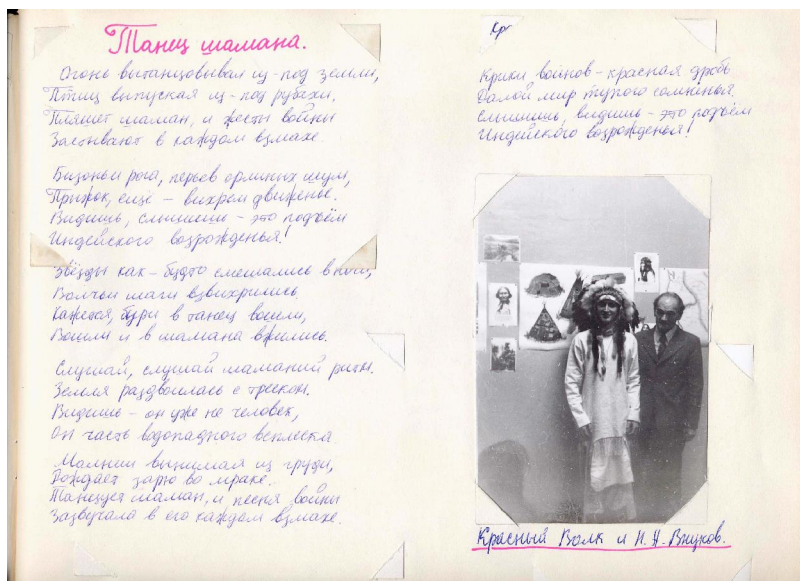 Танец шамана.
Огонь вытанцовывал из-под земли,
Птиц выпуская из-под рубахи,
Пляшет шаман, и жесты войны
Застывают в каждом взмахе.
Бизоньи рога, перьев орлиных шум,
Прыжок, ещё – вихрем движенье.
Видишь, слышишь – это подъём
Индейского возрожденья!
Звёзды как-будто смешались в ночи,
Волчьи шаги взвихрились.
Кажется, бури в танец вошли,
Вошли и в шамана вжились.
Слушай, слушай шаманий ритм.
Земля раздвоилась с треском.
Видишь – он уже не человек,
Он часть водопадного всплеска.
Молнии вынимая из груди,
Рождает зарю во мраке.
Танцует шаман, и песня войны
Зазвучала в его каждом взмахе.
Кр
Крики воинов – красная дробь
Далой мир тупого сомненья,
Слышишь, видишь – это подъём
Индейского возрожденья!
Красный Волк и И. А. Внуков.